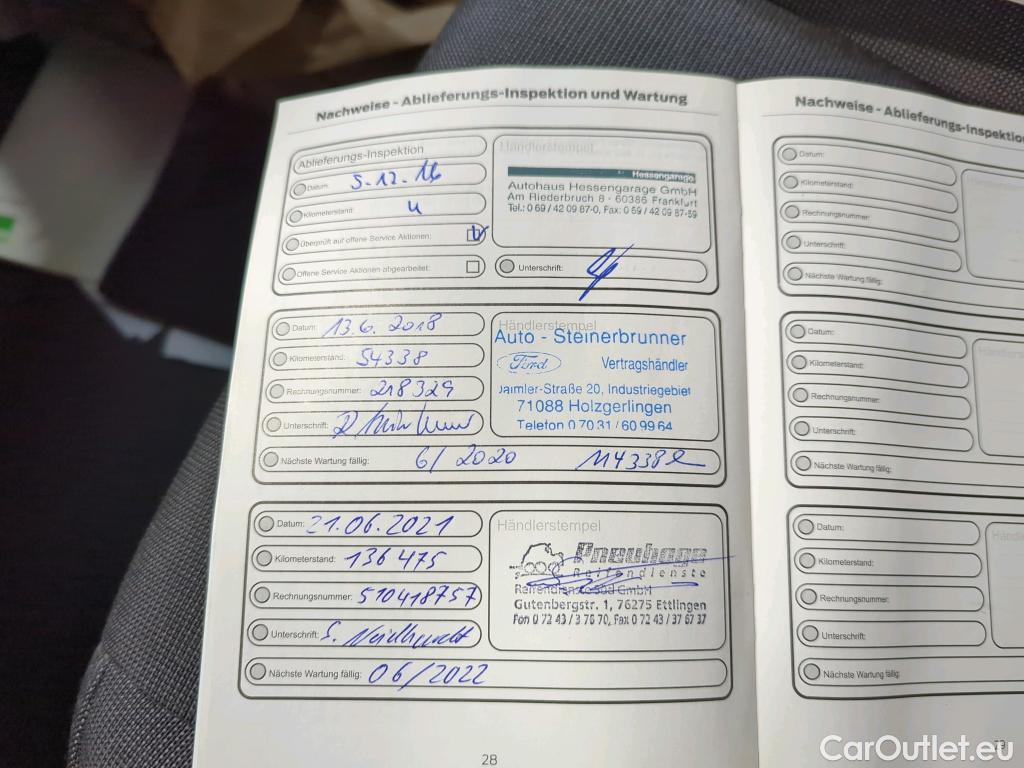 Nachweise - Ablieferungs-Inspektion und Wartung
Ablieferungs-Inspektion
Datum: 5.12.16
Kilometerstand: 4
Überprüft auf offene Service Aktionen:
Offene Service Aktionen abgearbeitet:
Händlerstempel
Hessengarage
Autohaus Hessengarage GmbH
Am Riederbruch 8 · 60386 Frankfurt
Tel.: 0 69 / 42 09 87-0, Fax: 0 69 / 42 09 87-59
Unterschrift:
Datum: 13.6.2018
Kilometerstand: 54338
Rechnungsnummer: 218329
Unterschrift:
Händlerstempel
Auto - Steinerbrunner
Ford Vertragshändler
Daimler-Straße 20, Industriegebiet
71088 Holzgerlingen
Telefon 0 70 31 / 60 99 64
Nächste Wartung fällig: 6/2020 114338
Datum: 21.06.2021
Kilometerstand: 136 475
Rechnungsnummer: 510418757
Unterschrift:
Händlerstempel
Pneuhage
Reifendienste
Reifendienste Süd GmbH
Gutenbergstr. 1, 76275 Ettlingen
Fon 0 72 43 / 3 76 70, Fax 0 72 43 / 37 67 37
Nächste Wartung fällig: 06/2022
28
Nachweise - Ablieferungs-Inspektion
Datum:
Kilometerstand:
Rechnungsnummer:
Unterschrift:
Nächste Wartung fällig:
Händlerstempel
Datum:
Kilometerstand:
Rechnungsnummer:
Unterschrift:
Nächste Wartung fällig:
Datum:
Kilometerstand:
Rechnungsnummer:
Unterschrift:
Nächste Wartung fällig:
29
CarOutlet.eu